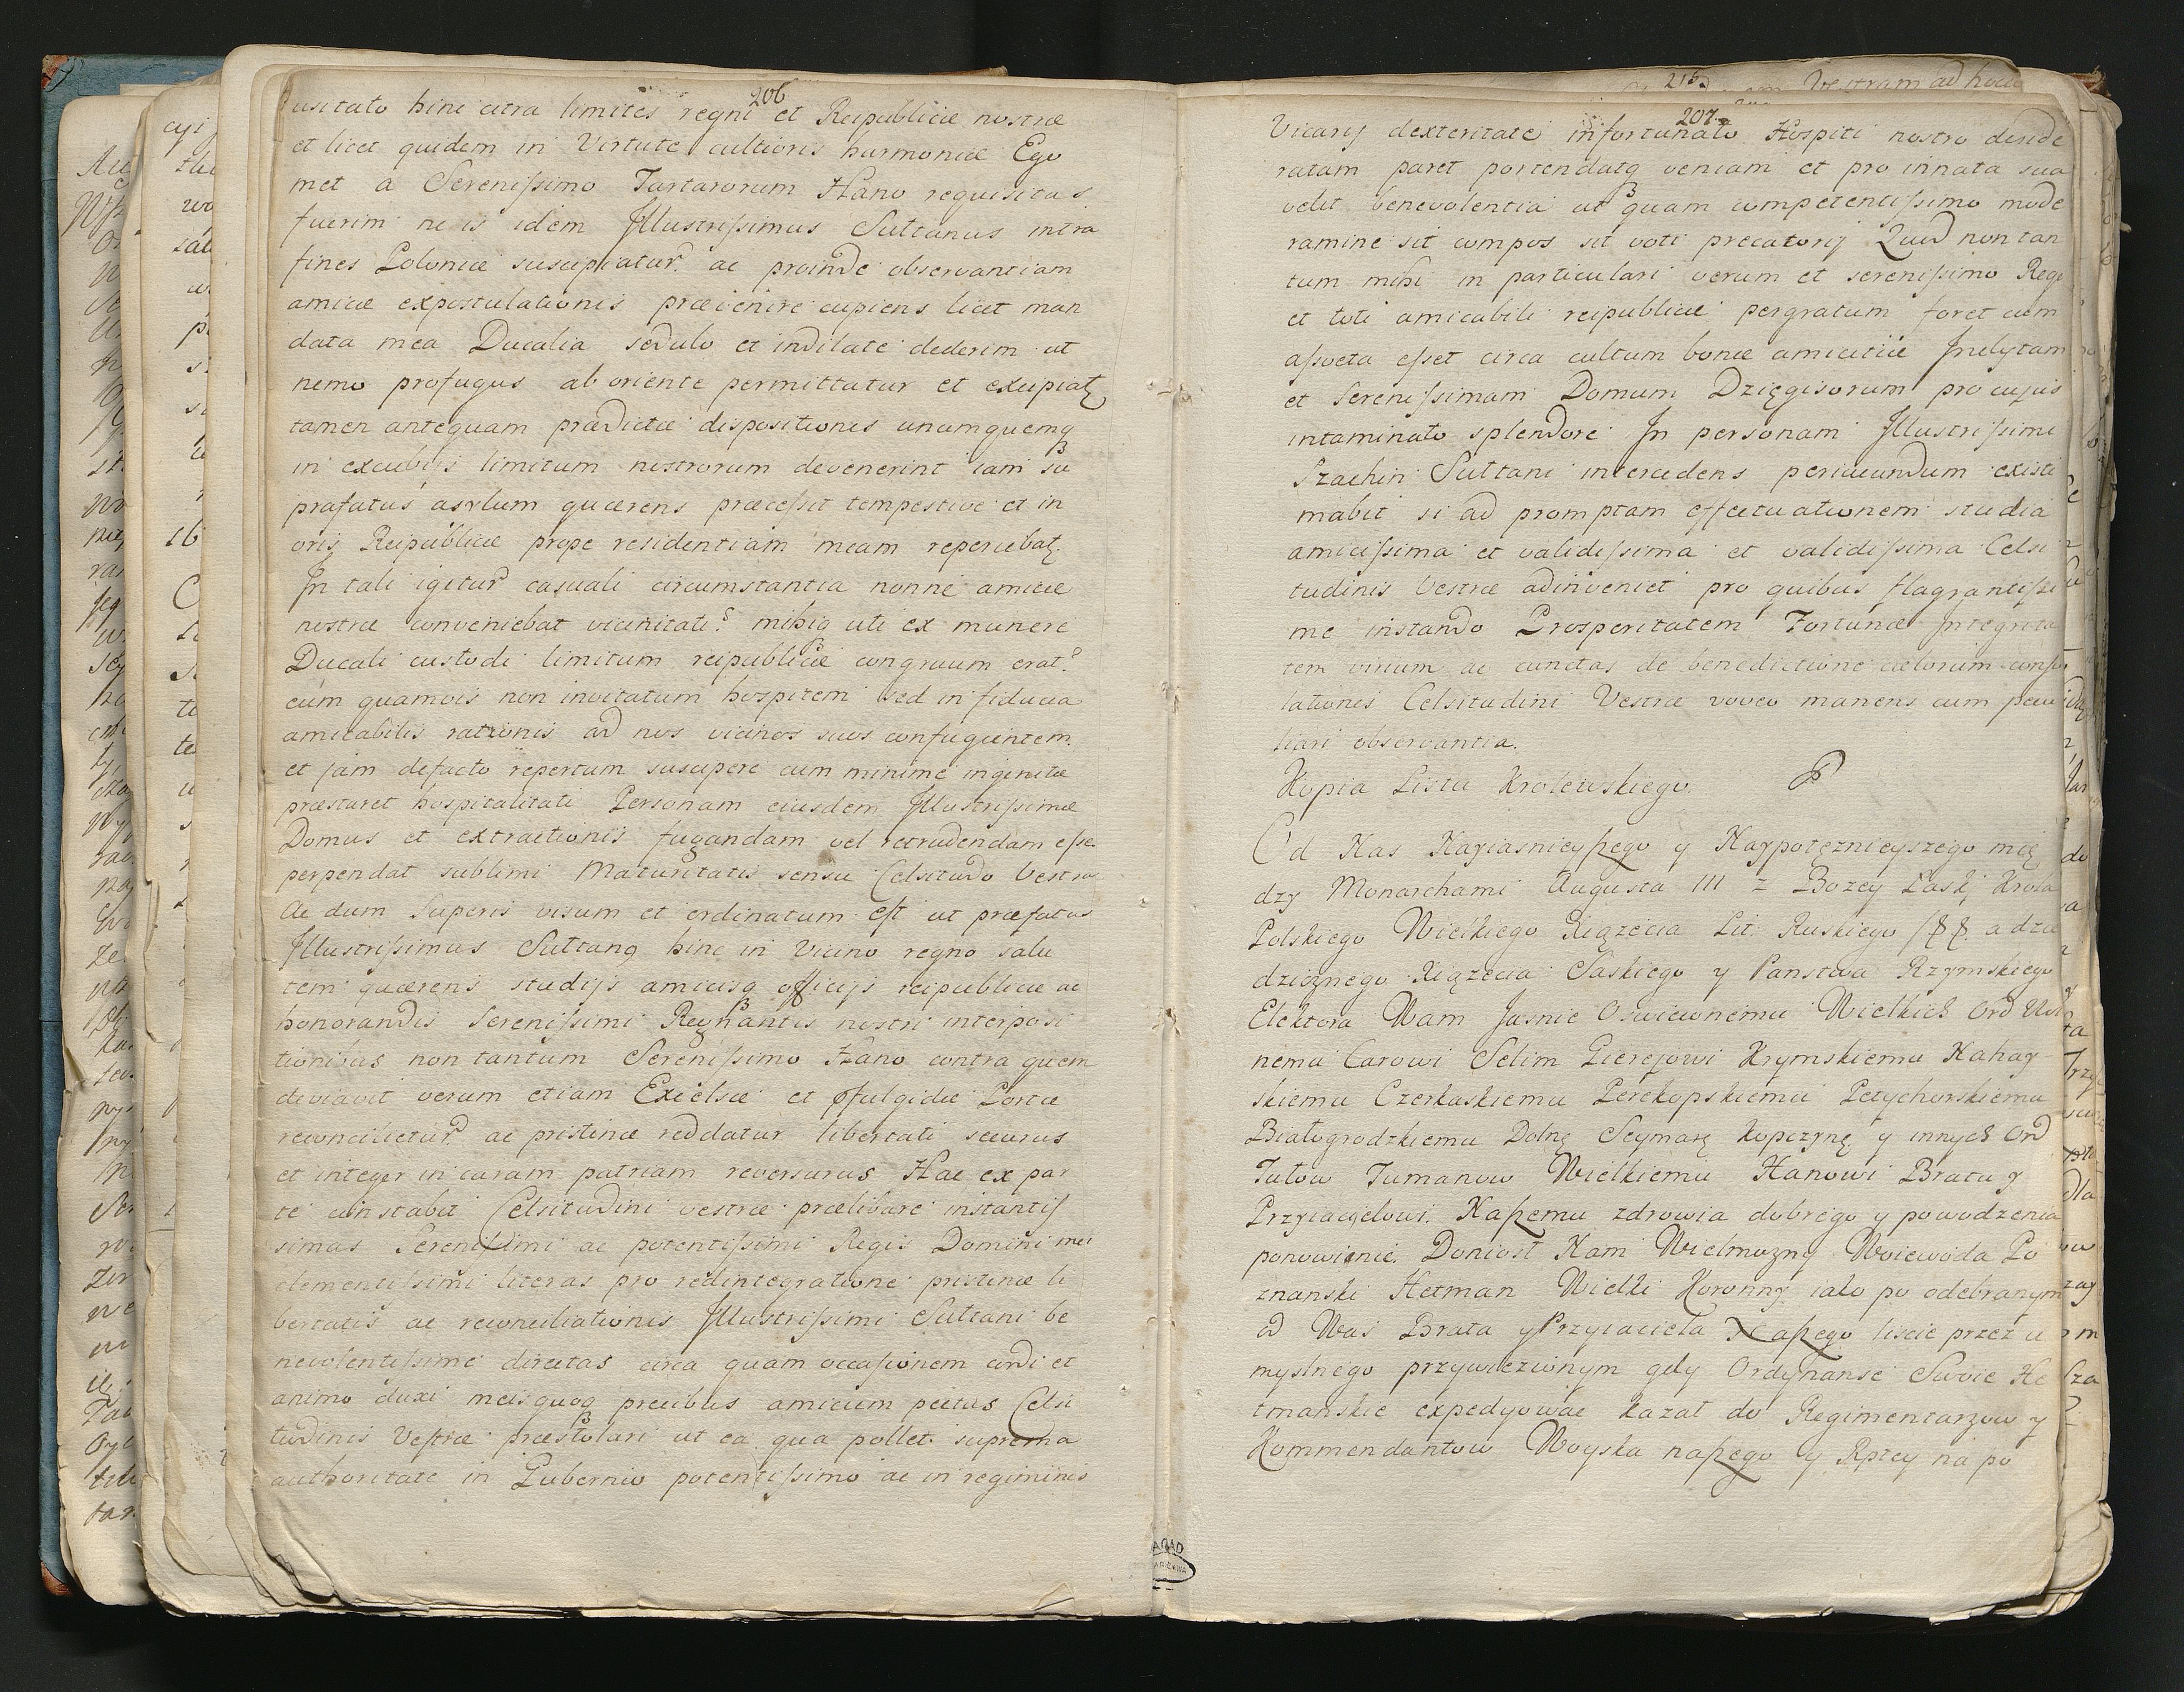 206
usitato hinc citra limites regni et Reipublicæ nostræ
et licet quidem in Virtute cultioris harmoniæ Ego
met a Serenissimo Tartarorum Hano requisitus
fuerim ne is idem Illustrissimus Sultanus intra
fines Poloniæ suscipiatur. ac proinde observantiam
amicæ expostulationis prævenire cupiens licet man
data mea Ducalia sedulo et indilate dederim ut
nemo profugus ab oriente permittatur et excipiatz
tamen antequam prædictæ dispositiones unumquemq
in excubijs limitum nostrorum devenerint iam su
prafatus asylum quærens præcessit tempestive et in
oris Reipublicæ prope residentiam meam reperiebatz.
In tali igitur casuali circumstantia nonne amicæ
nostræ conveniebat vicinitati? mihiq uti ex munere
Ducali custodi limitum reipublicæ congruum erat?
eum quamvis non invitatum hospitem sed in fiducia
amicabilis rationis ad nos vicinos suos confugientem.
et jam defacto repertum suscipere cum minime ingenitæ
præstaret hospitalitati Personam eiusdem Illustrissimæ
Domus et extractionis fugandam vel retrudendam esse
perpendat sublimi Maturitatis sensu Celsitudo Vestra
Ac dum Superis visum et ordinatum est ut præfatus
Illustrissimus Sultanq hinc in Vicino regno salu
tem quærens studijs amicisq officijs reipublicæ ac
honorandis Serenissimi Regnantis nostri interposi
tionibus non tantum Serenissimo Hano contra quem
deviavit verum etiam Excelsæ et fulgidæ Portæ
reconcilietur ac pristinæ reddatur libertati securus
et integer in caram patriam reversurus Hac ex par
te constabit Celsitudini vestræ prælibare instantis
simas Serenissimi ac potentissimi Regis Domini mei
clementissimi literas pro redintegratione pristinæ li
bertatis ac reconciliationis Illustrissimi Sultani be
nevolentissime directas circa quam occasionem cordi et
animo duxi meisquoq precibus amicum pectus Celsi
tudinis Vestræ præstolari ut ea qua pollet suprema
authoritate in Gubernio potentissimo ac in regiminis
215.
Vestram ad hoc
207
Vicarij dexteritate infortunato Hospiti nostro deside
ratam paret portendatq veniam et pro innata sua
velit benevolentia ut quam competentissimo mode
ramine sit compos sit voti precatorij Quod non tan
tum mihi in particulari verum et serenissimo Regi
et toti amicabili reipublicæ pergratum foret cum
assveta esset circa cultum bonæ amicitiæ Inclytam
et Serenissimam Domum Dzięgisorum pro cujus
intaminato splendore In personam Illustrissimi
Szachin Sultani intercedens periucundum existi
mabit si ad promptam effectuationem studia
amicissima et validissima et validissima Celsi
tudinis Vestræ adinveniet pro quibus flagrantissi
me instando Prosperitatem Fortunæ Integrita
tem virium ac cunctas de benedictione cælorum conso
lationes Celsitudini Vestræ voveo manens cum pecu
liari observantia.
Kopia Listu Krolewskiego.
Od Nas Nayiasnieyszego y Naypotęznieyszego mię
dzy Monarchami Augusta III z Bozey Łaski Krola
Polskiego Wielkiego Xiązęcia Lit. Ruskiego a dzie
dzicznego Xiązęcia Saskiego y Panstwa Rzymskiego
Elektora Wam Jasnie Oswieconemu Wielkich Ord Wol
nemu Carowi Selim Gierejowi Krymskiemu Nahay
skiemu Czerkaskiemu Perekopskiemu Petyhorskiemu
Białogrodzkiemu Dolnę Seymarę Kopczynę y innych Ord
Tułow Tumanow Wielkiemu Hanowi Bratu y
Przyiacielowi. Naszemu zdrowia dobrego y powodzenia
ponowienie. Doniosł Nam Wielmozny Woiewoda Po
znanski Hetman Wielki Koronny iako po odebranym
od Was Brata y Przyiaciela Naszego liscie przez u
myslnego przywiezionym gdy Ordynanse Swoie He
tmanskie expedyowac kazał do Regimentarzow y
Kommendantow Woyska naszego y Rptey na po
AGAD